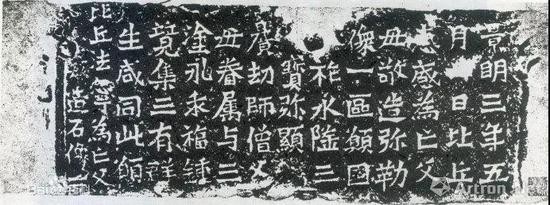 景明三年五
月日比丘
惠感為亡父
母敬造弥勒
像一區願國
祚永隆三
寶弥顯
曠劫師僧父
母眷属与三
塗永乖福鍾
竟集三有群
生咸同此願
比丘法寧為亡父
造石像一
Artron